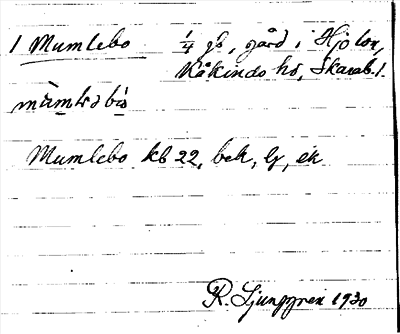 1 Mumlebo ¼ gd, gård i Hjo lfs,
Kåkinds hd, Skarab. l.
Mumlebo kb 22, bek, lf, ek
R. Ljunggren 1930